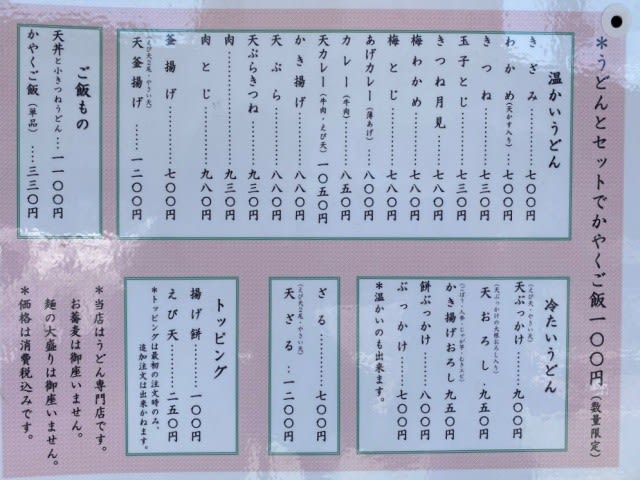 ＊うどんとセットでかやくご飯一〇〇円（数量限定）
温かいうどん
きざみ………七〇〇円
わかめ（天かす入り）…七〇〇円
きつね………七三〇円
玉子とじ………七三〇円
きつね月見………七八〇円
梅わかめ………七八〇円
梅とじ………七八〇円
あげカレー（薄あげ）………八〇〇円
カレー（牛肉）………八五〇円
天カレー（牛肉・えび天）一〇五〇円
かき揚げ………八八〇円
天ぷら………八八〇円
天ぷらきつね………九三〇円
肉………九三〇円
肉とじ………九八〇円
釜揚げ………七〇〇円
（えび天２尾・やさい天）
天釜揚げ………一二〇〇円
ご飯もの
天丼と小きつねうどん…一一〇〇円
かやくご飯（単品）…三三〇円
冷たいうどん
（えび天・やさい天）
天ぶっかけ………九〇〇円
（天ぶっかけの大根おろし入り）
天おろし．九五〇円
かき揚げおろし 九五〇円
餅ぶっかけ………八〇〇円
ぶっかけ………七〇〇円
＊温かいのも出来ます。
ざる………七〇〇円
（えび天２尾・やさい天）
天ざる…一二〇〇円
トッピング
揚げ餅 一〇〇円
えび天………二五〇円
＊トッピングは最初の注文時のみ、
追加注文は出来かねます。
＊当店はうどん専門店です。
お蕎麦は御座いません。
麺の大盛りは御座いません。
＊価格は消費税込みです。